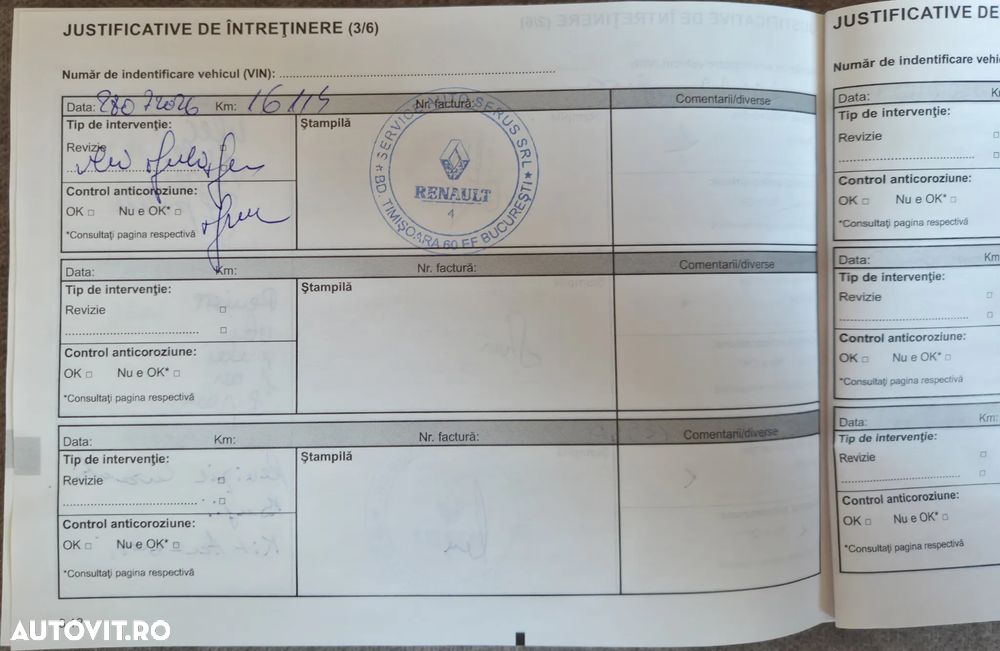 JUSTIFICATIVE DE ÎNTREŢINERE (3/6)
Număr de indentificare vehicul (VIN):
Data: Km: Nr. factură: Comentarii/diverse
Tip de intervenţie: Ştampilă
Revizie
Control anticoroziune:
OK □ Nu e OK* □
*Consultaţi pagina respectivă
SERVICE AUTO SERUS SRL
RENAULT
4
BD. TIMIŞOARA 60 EF BUCUREŞTI
Data: Km: Nr. factură: Comentarii/diverse
Tip de intervenţie: Ştampilă
Revizie □
□
Control anticoroziune:
OK □ Nu e OK* □
*Consultaţi pagina respectivă
Data: Km: Nr. factură: Comentarii/diverse
Tip de intervenţie: Ştampilă
Revizie □
□
Control anticoroziune:
OK □ Nu e OK* □
*Consultaţi pagina respectivă
JUSTIFICATIVE DE
Număr de indentificare
Data:
Tip de intervenţie:
Revizie □
□
Control anticoroziune:
OK □ Nu e OK* □
*Consultaţi pagina respectivă
Data: Km:
Tip de intervenţie:
Revizie □
□
Control anticoroziune:
OK □ Nu e OK* □
*Consultaţi pagina respectivă
Data: Km:
Tip de intervenţie:
Revizie □
□
Control anticoroziune:
OK □ Nu e OK* □
*Consultaţi pagina respectivă
AUTOVIT.RO